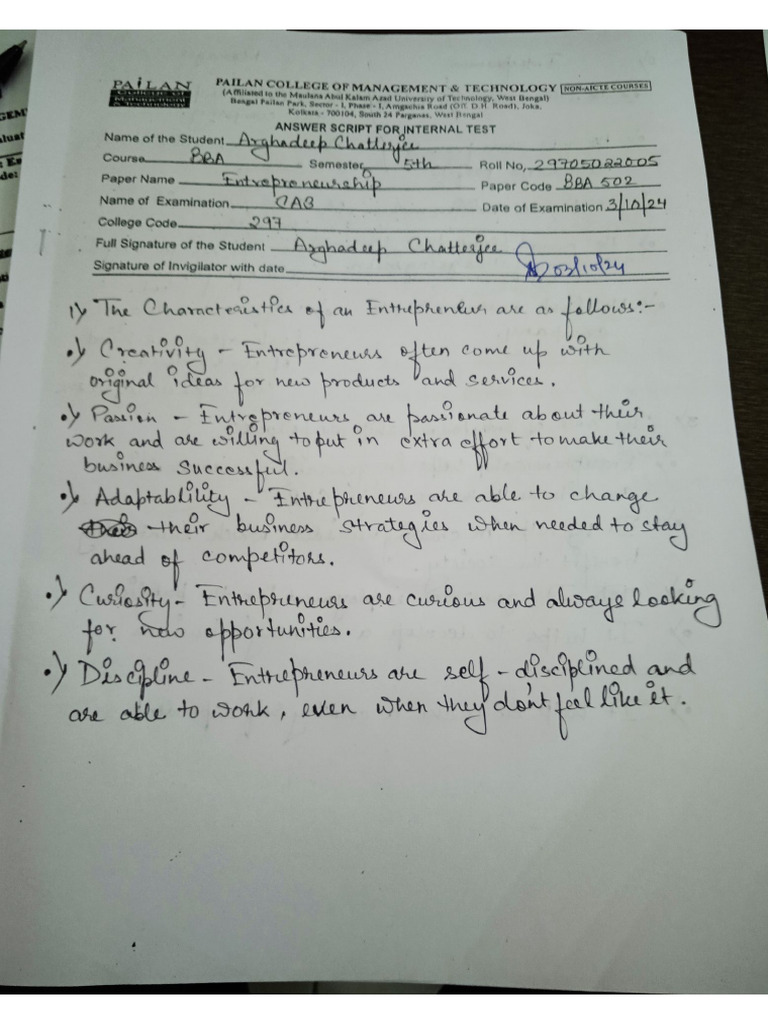 PAILAN
College of
Management
& Technology
PAILAN COLLEGE OF MANAGEMENT & TECHNOLOGY NON-AICTE COURSES
(Affiliated to the Maulana Abul Kalam Azad University of Technology, West Bengal)
Bengal Pailan Park, Sector - I, Phase - I, Amgachia Road (Off. D.H. Road), Joka,
Kolkata - 700104, South 24 Parganas, West Bengal
ANSWER SCRIPT FOR INTERNAL TEST
Name of the Student Arghadeep Chatterjee
Course BBA Semester 5th Roll No, 29705022005
Paper Name Entrepreneurship Paper Code BBA 502
Name of Examination CA3 Date of Examination 3/10/24
College Code 297
Full Signature of the Student Arghadeep Chatterjee
Signature of Invigilator with date 03/10/24
1) The Characteristics of an Entrepreneur are as follows:-
•) Creativity - Entrepreneurs often come up with
original ideas for new products and services.
•) Passion - Entrepreneurs are passionate about their
work and are willing to put in extra effort to make their
business successful.
•) Adaptablility - Entrepreneurs are able to change
their business strategies when needed to stay
ahead of competitors.
•) Curiosity - Entrepreneurs are curious and always looking
for new opportunities.
•) Discipline - Entrepreneurs are self-disciplined and
are able to work, even when they don't feel like it.